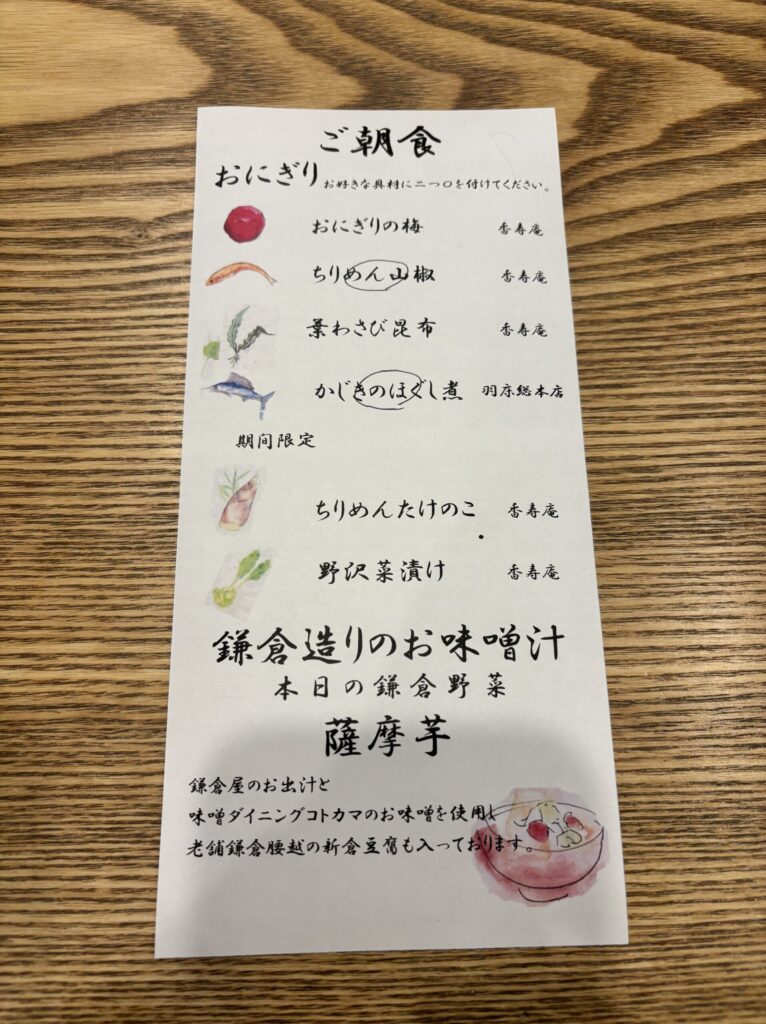 ご朝食
おにぎり お好きな具材に二つ〇を付けてください。
おにぎりの梅 香寿庵
ちりめん山椒 香寿庵
葉わさび昆布 香寿庵
かじきのほぐし煮 羽床総本店
期間限定
ちりめんたけのこ 香寿庵
野沢菜漬け 香寿庵
鎌倉造りのお味噌汁
本日の鎌倉野菜
薩摩芋
鎌倉屋のお出汁と
味噌ダイニングコトカマのお味噌を使用し
老舗鎌倉腰越の新倉豆腐も入っております。